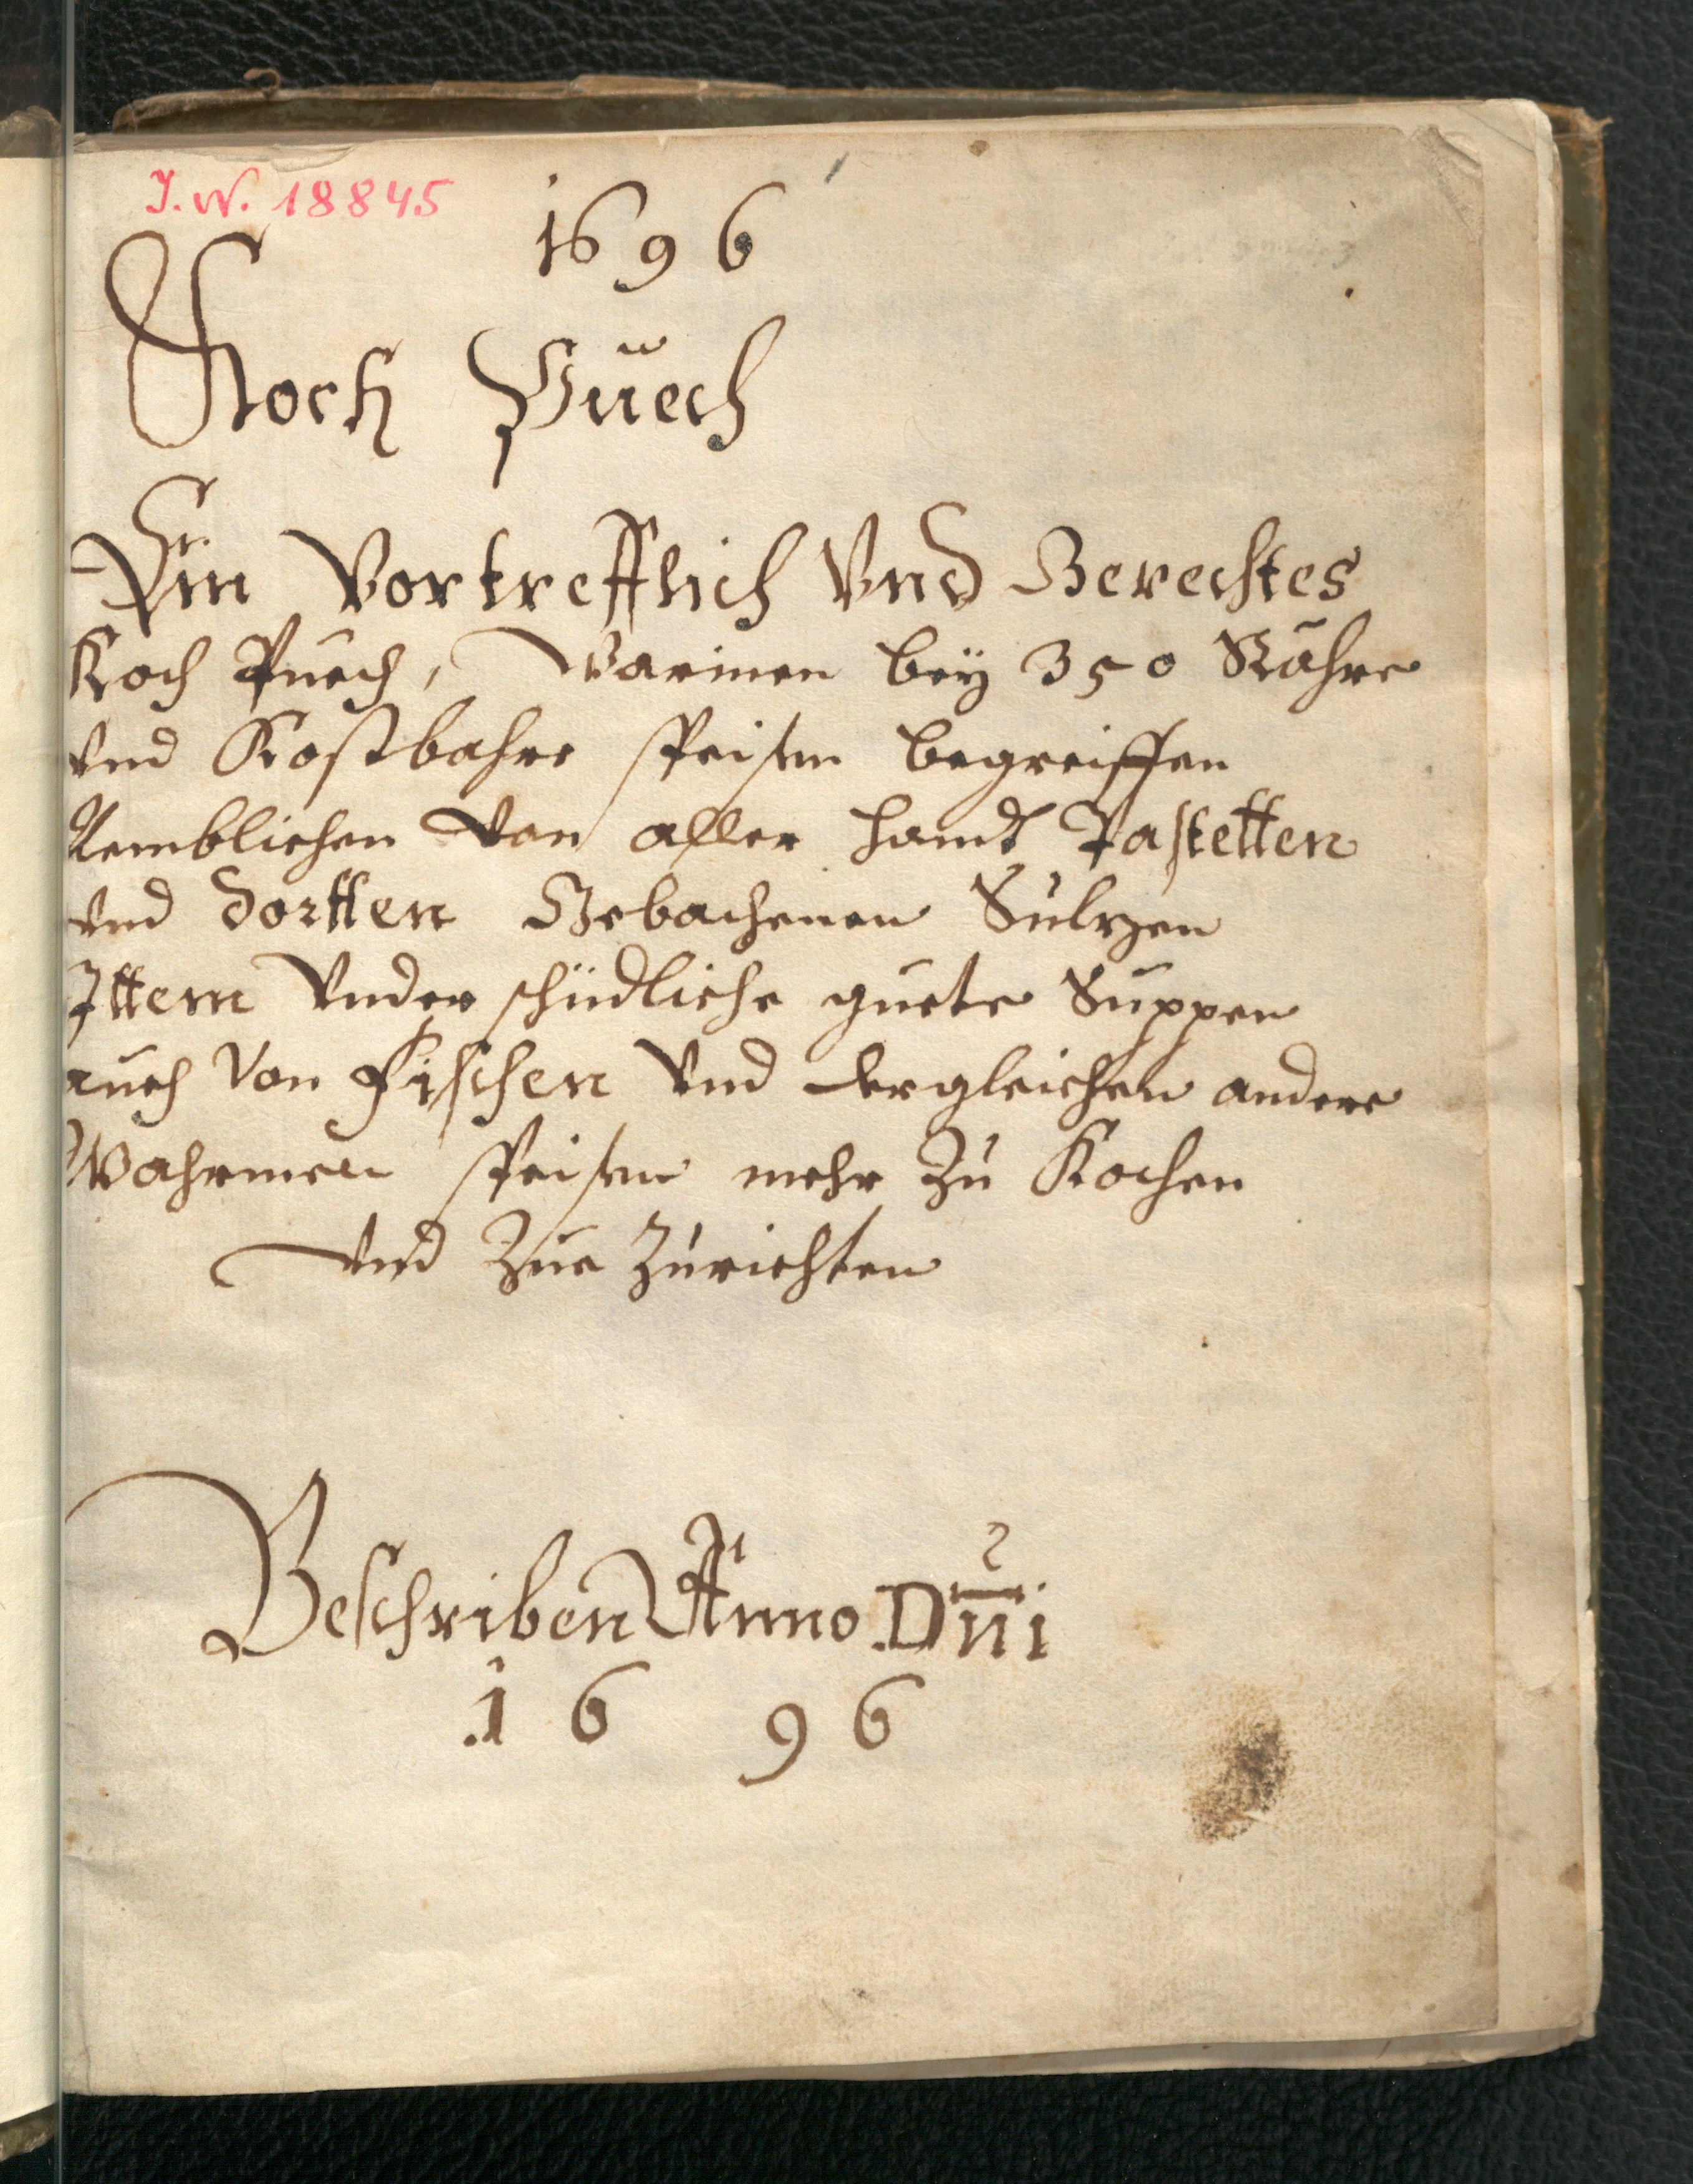 J. N. 18845
1696
Koch Puech
Ein Vortrefflich Vnd Gerechtes
Koch Puech, Warinen beÿ 350 Rahre
vnd Kostbahre speisen begreiffen
Nemblichen von aller handt Pastetten
vnd dortten Gebachenen Sulzen
Ittem Vnder schidliche guete Suppen
auch Von Fischen Vnd dergleichen andere
Wahrmen speisen mehr zu Kochen
vnd zue zurichten
Beschriben Anno Dn̄i
1696